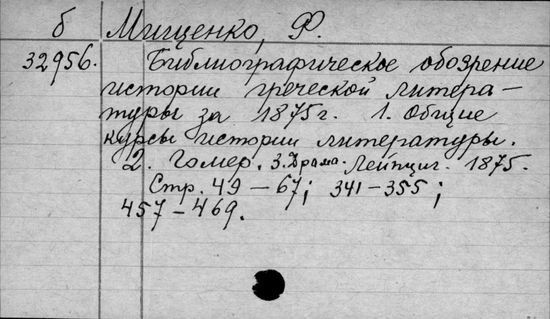 б Мищенко, Ф.
32956. Библиографическое обозрение
истории греческой литера-
туры за 1875 г. 1. Общие
курсы истории литературы.
2. Гомер. 3. Драма. Лейпциг. 1875.
Стр. 49 – 67; 341 – 355;
457 – 469.